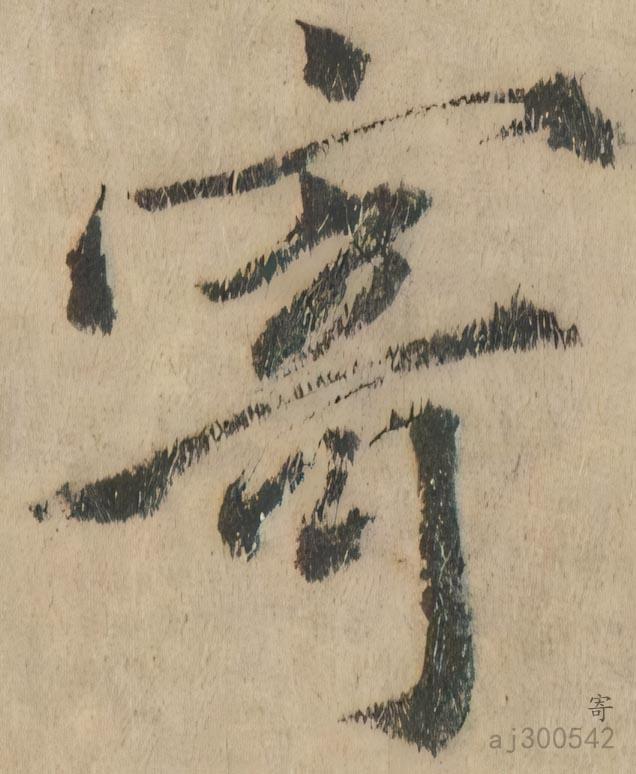 寄
寄
aj300542